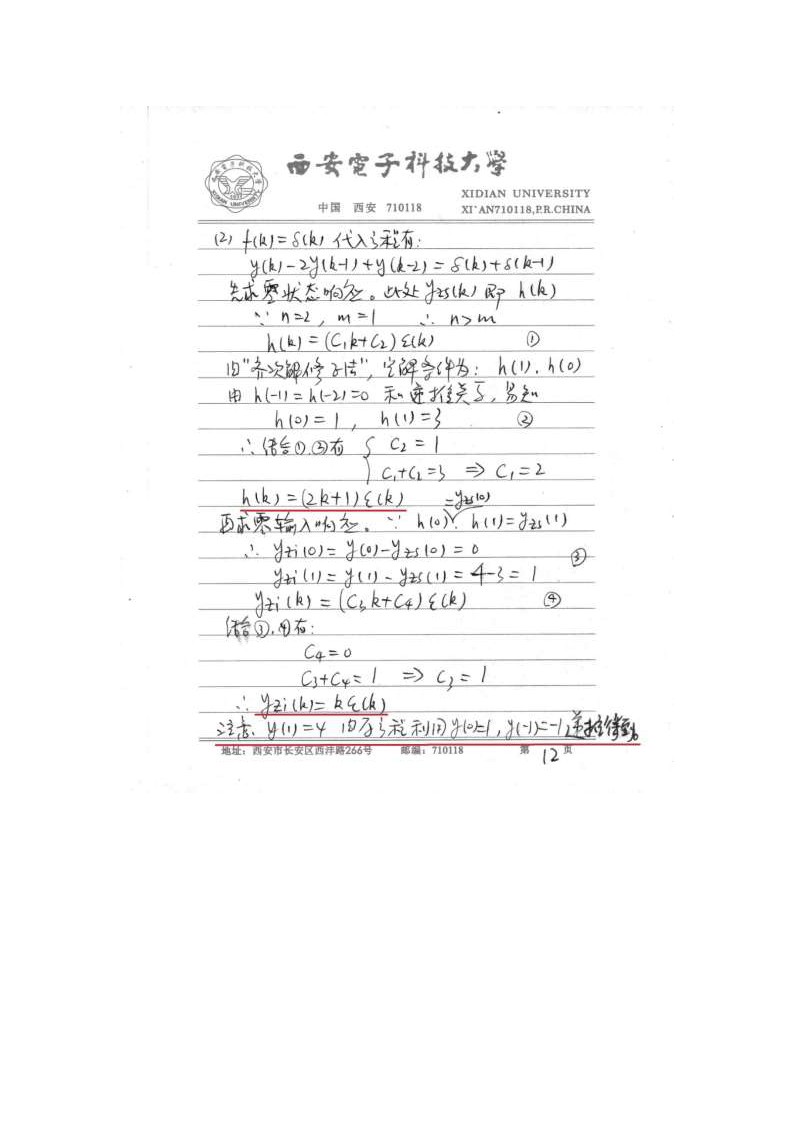 西安電子科技大學
XIDIAN UNIVERSITY
中国 西安 710118 XI'AN710118,P.R.CHINA
(2) f(k)=δ(k) 代入方程有:
y(k)-2y(k-1)+y(k-2)=δ(k)+δ(k-1)
先求零状态响应。此处 yzs(k) 即 h(k)
∵ n=2, m=1 ∴ n>m
h(k)=(C₁k+C₂)ε(k) ①
由"齐次解修正法", 定解条件为: h(1), h(0)
由 h(-1)=h(-2)=0 和递推关系, 易知
h(0)=1, h(1)=3 ②
∴ 结合①,②有 { C₂=1
C₁+C₂=3 ⇒ C₁=2
h(k)=(2k+1)ε(k) =yzs(0)
再求零输入响应。∵ h(0), h(1)=yzs(1)
∴ yzi(0)=y(0)-yzs(0)=0 ③
yzi(1)=y(1)-yzs(1)=4-3=1
yzi(k)=(C₃k+C₄)ε(k) ④
结合③,④有:
C₄=0
C₃+C₄=1 ⇒ C₃=1
∴ yzi(k)=kε(k)
注意, y(1)=4 由方程利用y(0)=1, y(-1)=-1递推得到。
地址: 西安市长安区西沣路266号 邮编: 710118 第 12 页